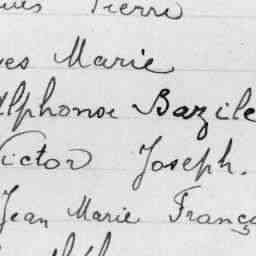 Pierre
Marie
Alphonse Bazile
Victor Joseph.
Jean Marie Franç